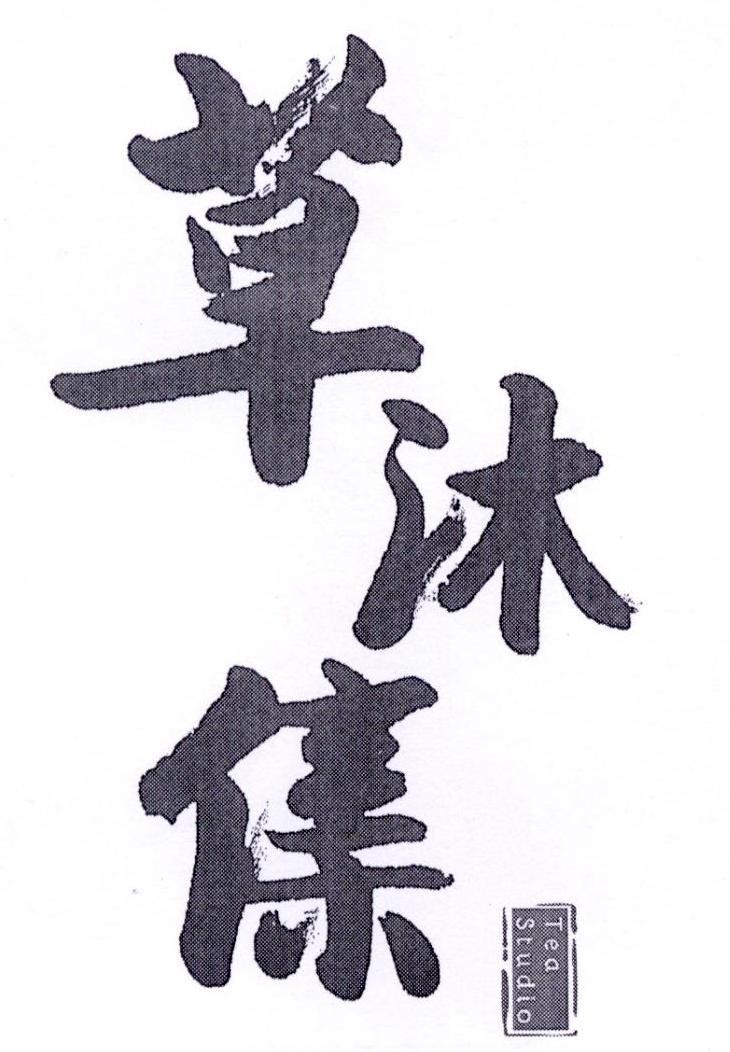 草沐集
Tea
Studio